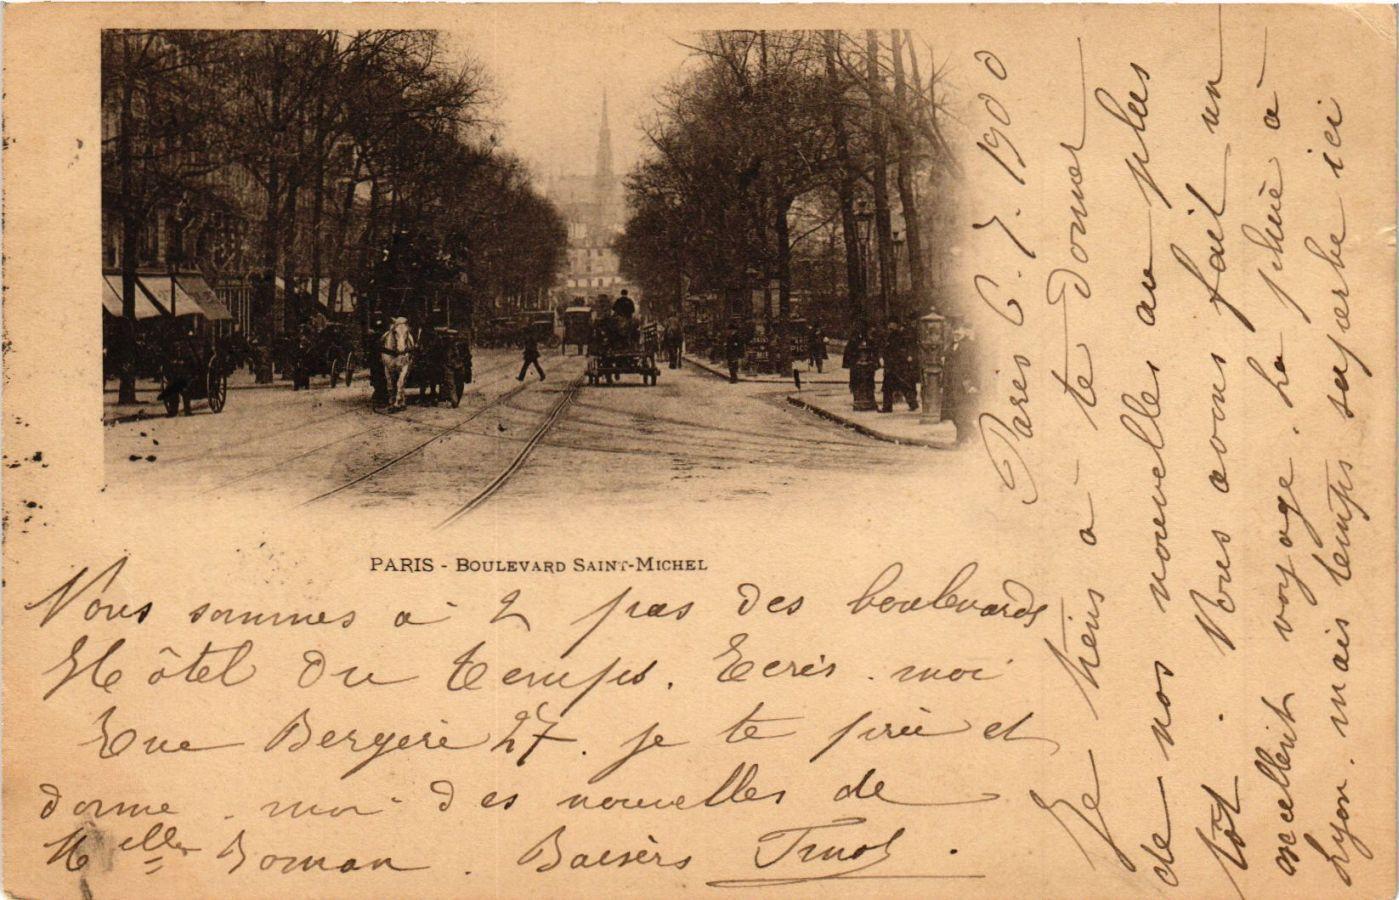 PARIS - BOULEVARD SAINT-MICHEL
Paris 6. 7. 1900
Je tiens à te donner
de nos nouvelles au plus
tôt. Nous avons fait un
excellent voyage. La pluie à
Lyon. mais temps superbe ici
Nous sommes à 2 pas des boulevards
Hôtel du temps. Ecris. moi
Rue Bergère 27. je te prie et
donne. moi des nouvelles de
Melle Roman. Baisers